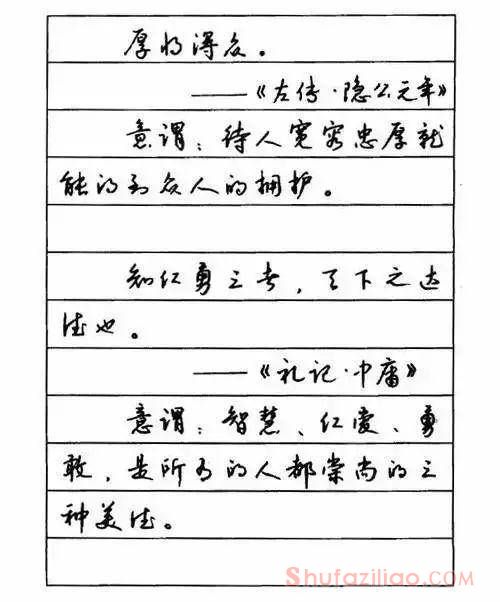 厚将得众。
——《左传·隐公元年》
意谓：待人宽容忠厚就
能得到众人的拥护。
知仁勇三者，天下之达
德也。
——《礼记·中庸》
意谓：智慧、仁爱、勇
敢，是所有的人都崇尚的三
种美德。
Shufaziliao.com